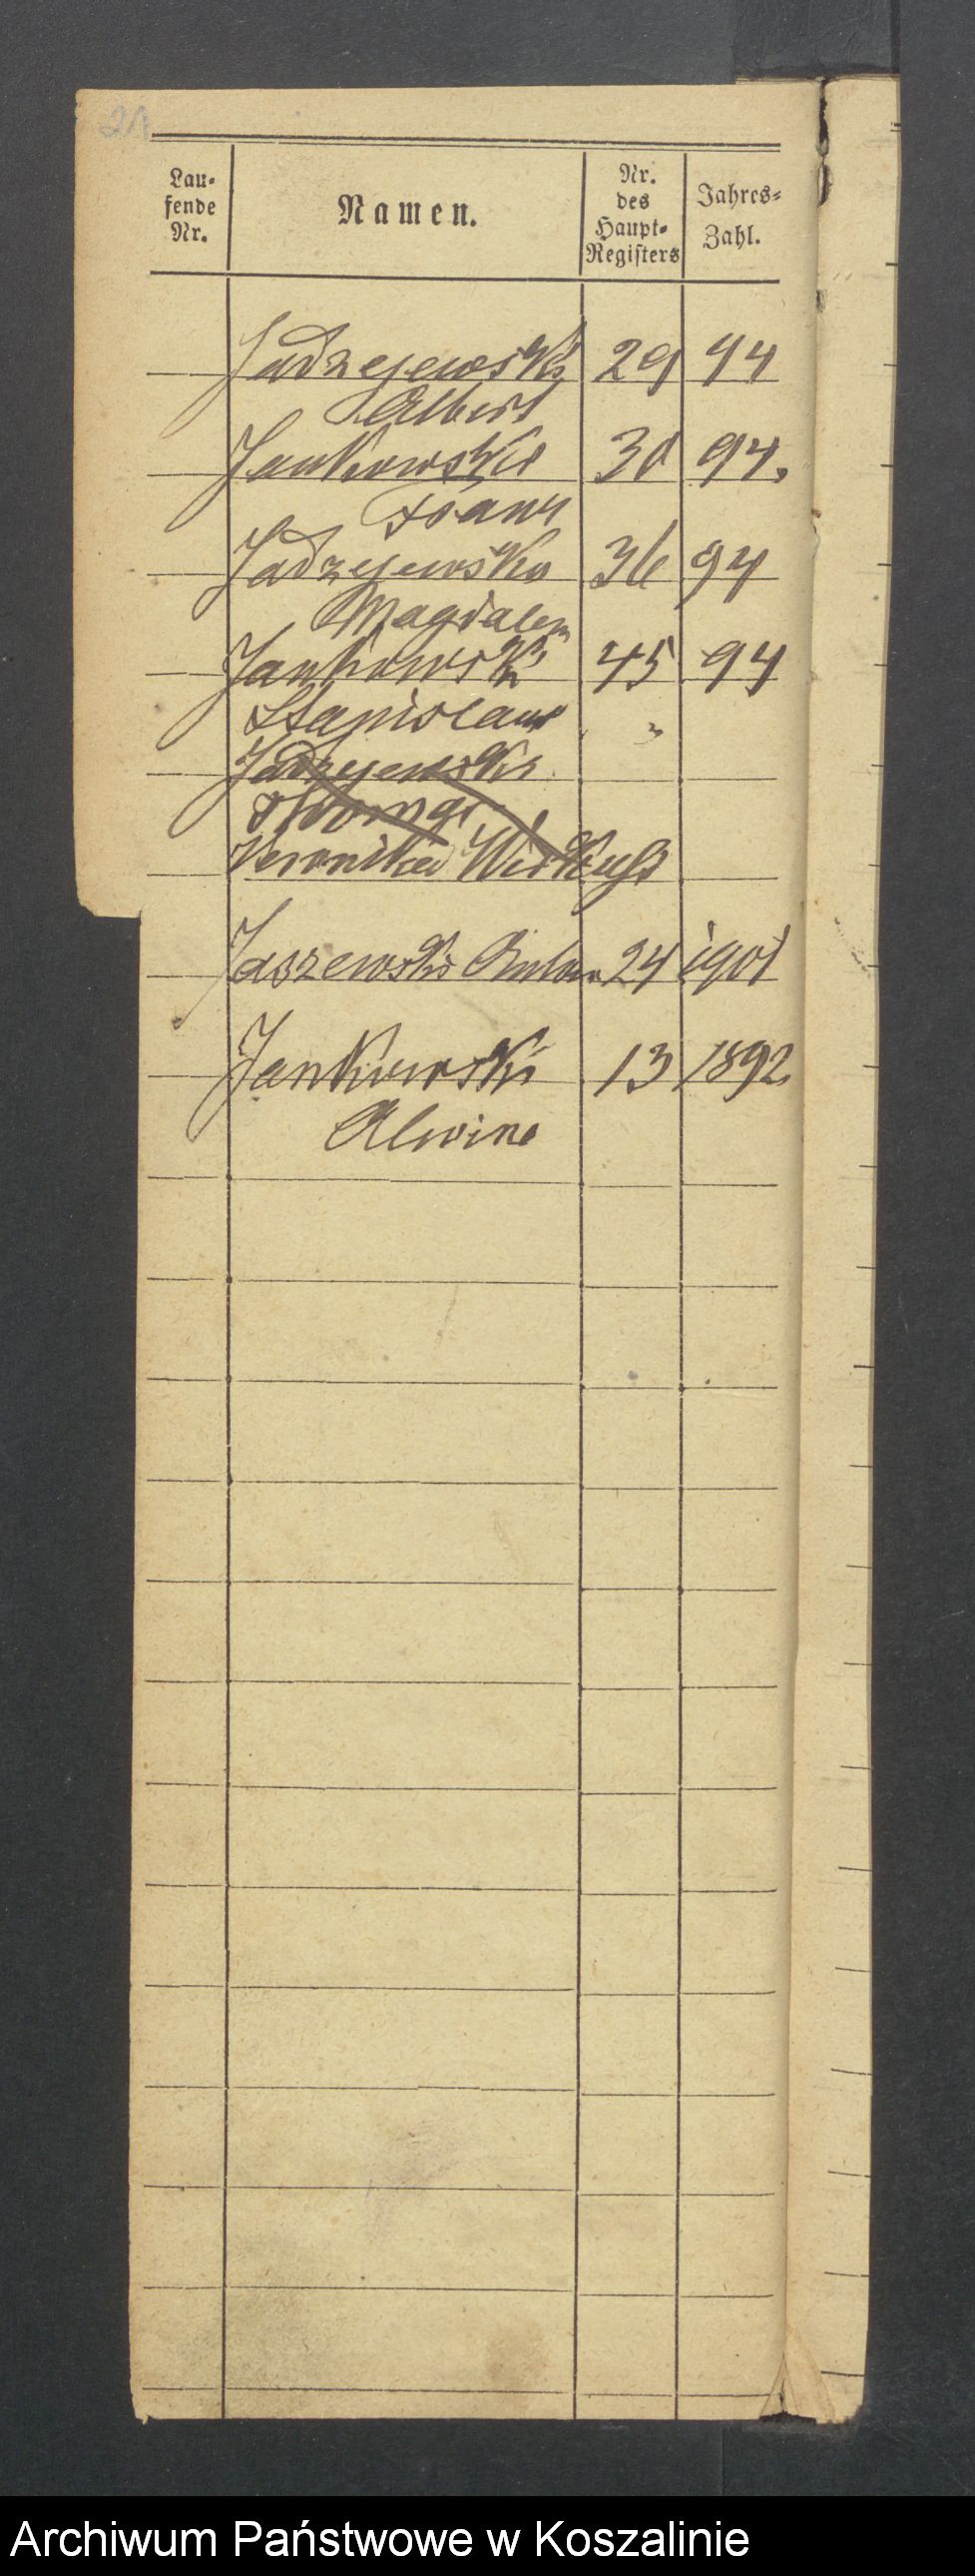 21
Lau-
fende
Nr.
Namen.
Nr.
des
Haupt-
Registers
Jahres-
Zahl.
Jadzejewski 29 94
Albert
Jankowski 30 94.
Franz
Jadzejewska 36 94
Magdalena
Jankowski 45 94
Stanislaus "
Jadzejewski
Veronika
Jaszewski Anton 24 1901
Jankowski 13 1892
Alwine
Archiwum Państwowe w Koszalinie